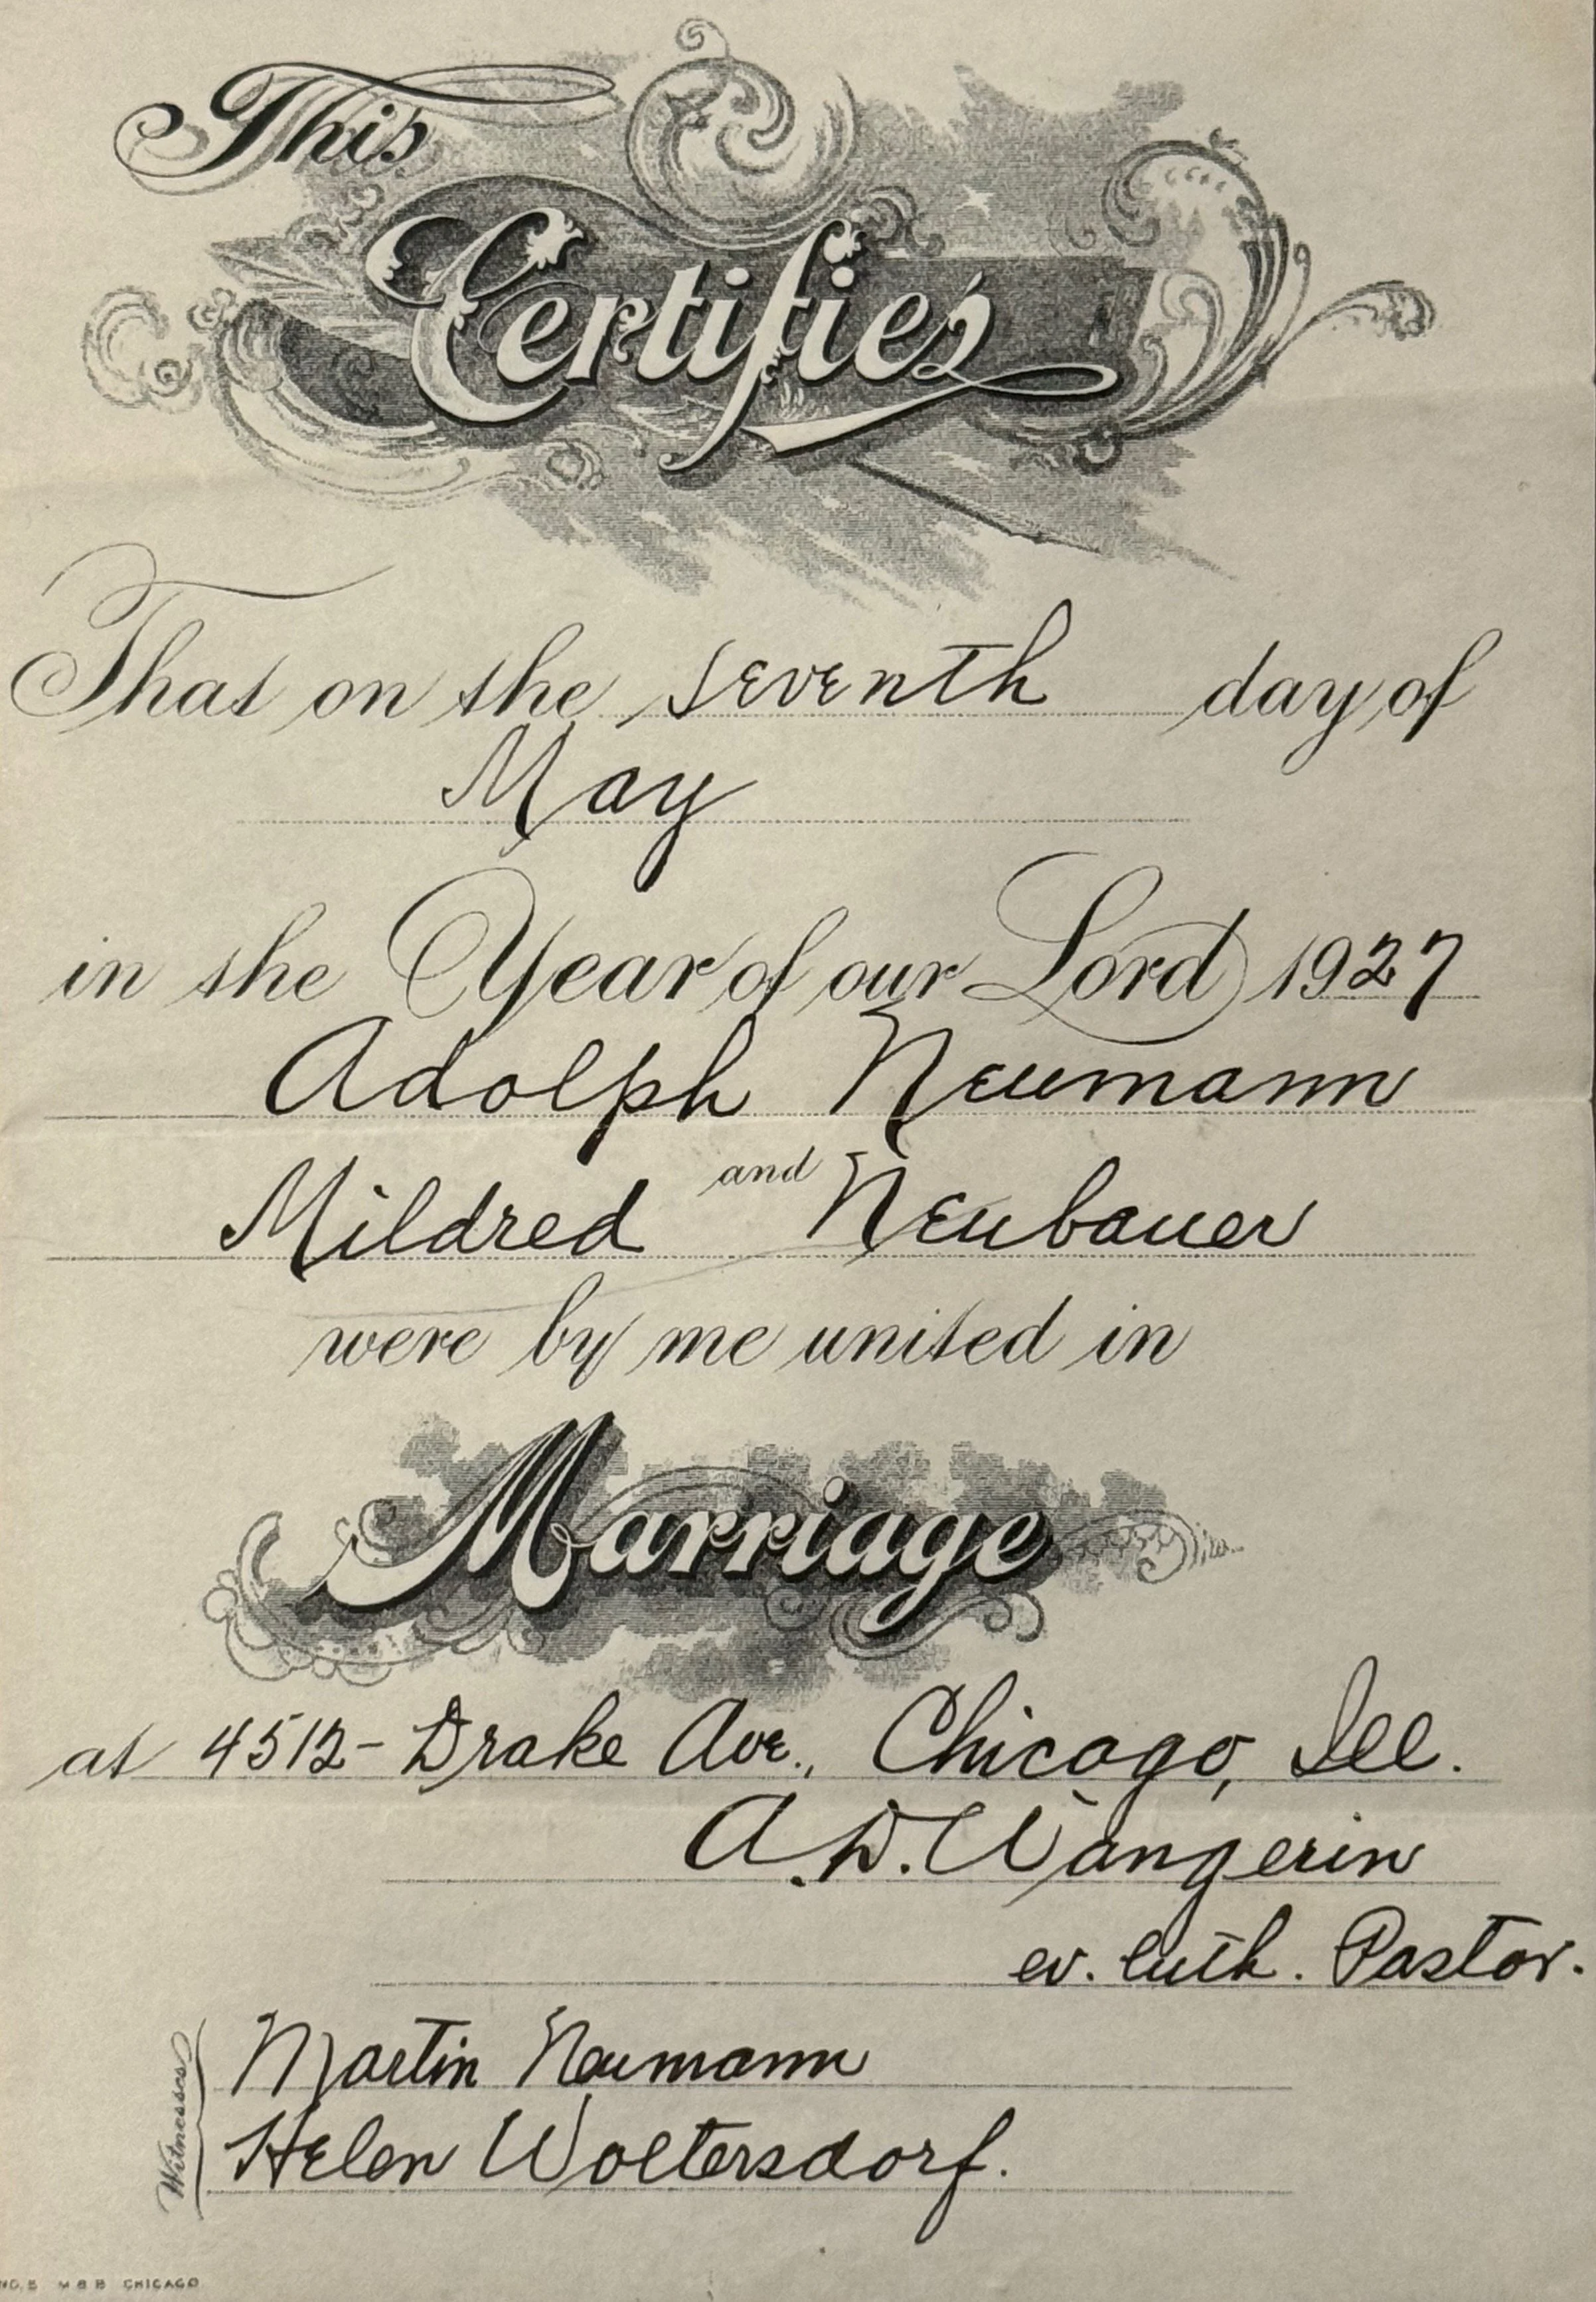 This
Certifies
That on the seventh day of
May
in the Year of our Lord 1927
Adolph Neumann
and
Mildred Neubauer
were by me united in
Marriage
at 4512- Drake Ave., Chicago, Ill.
A.D. Wangerin
ev. luth. Pastor.
Witnesses
Martin Neumann
Helen Woltersdorf.
NO. 5 M B B CHICAGO